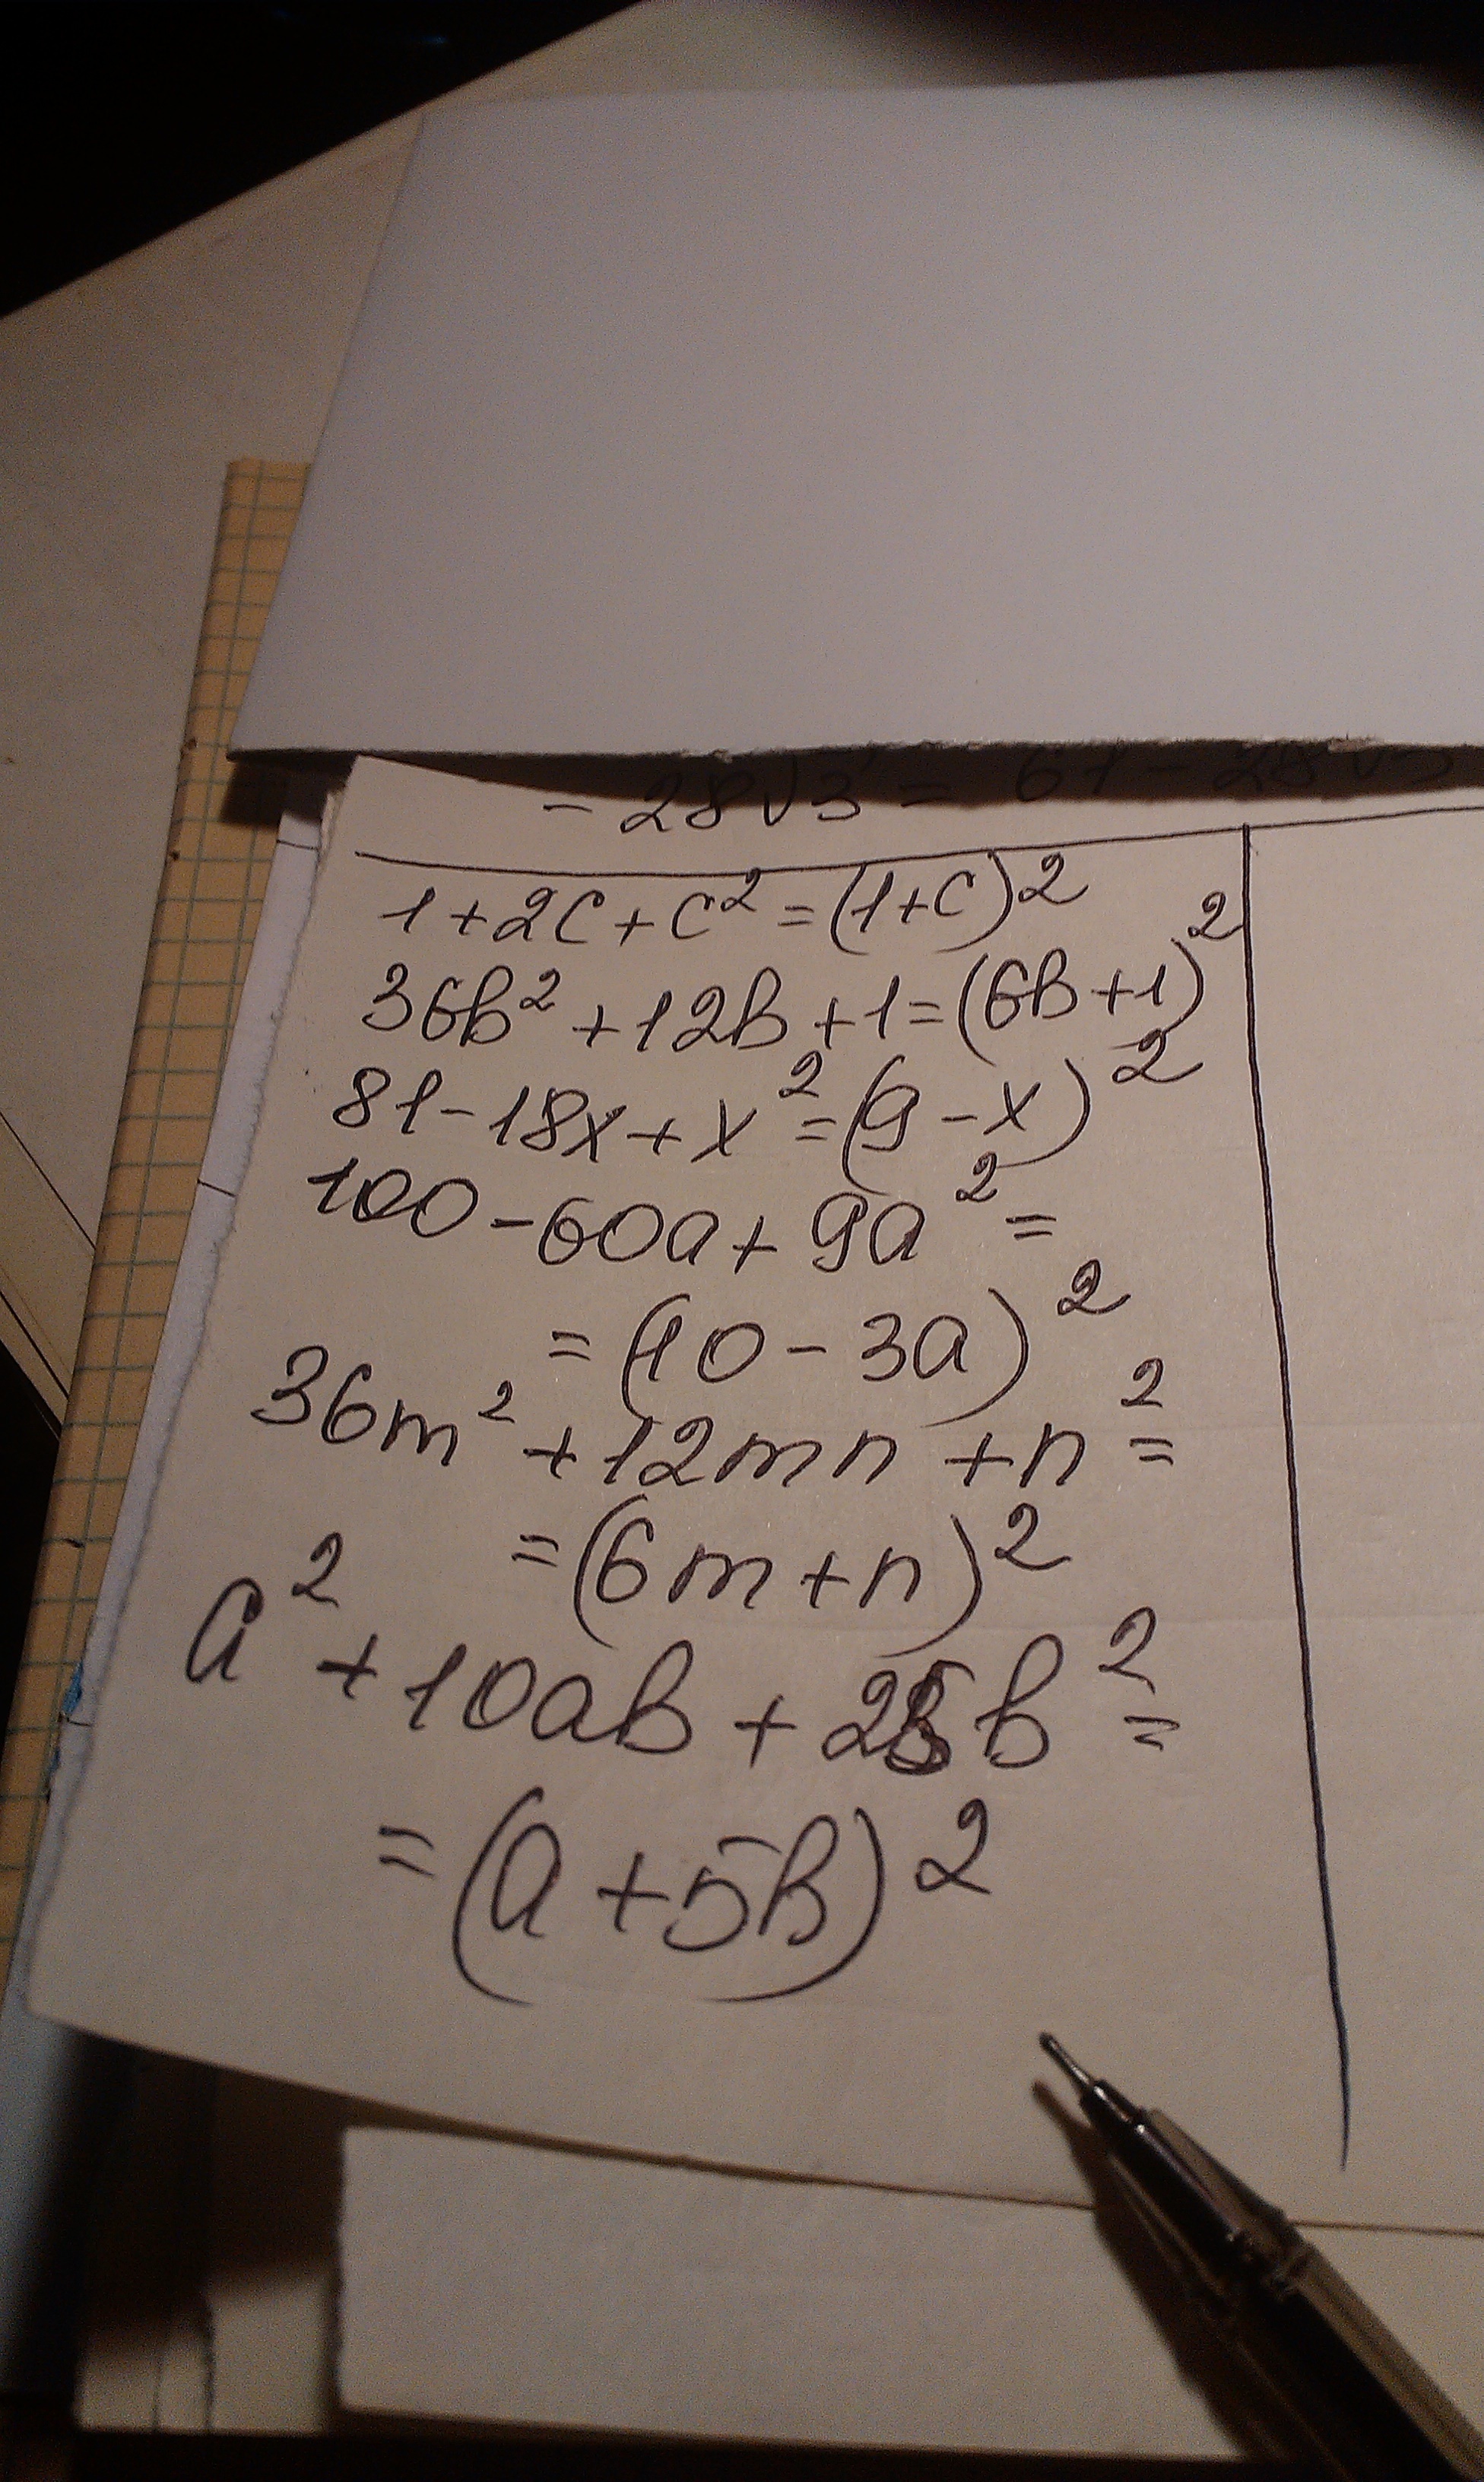 - 28√3 = 61 - 28√3
1+2c+c²=(1+c)²
36b²+12b+1=(6b+1)²
81-18x+x²=(9-x)²
100-60a+9a²=
=(10-3a)²
36m²+12mn+n²=
=(6m+n)²
a²+10ab+25b²=
=(a+5b)²